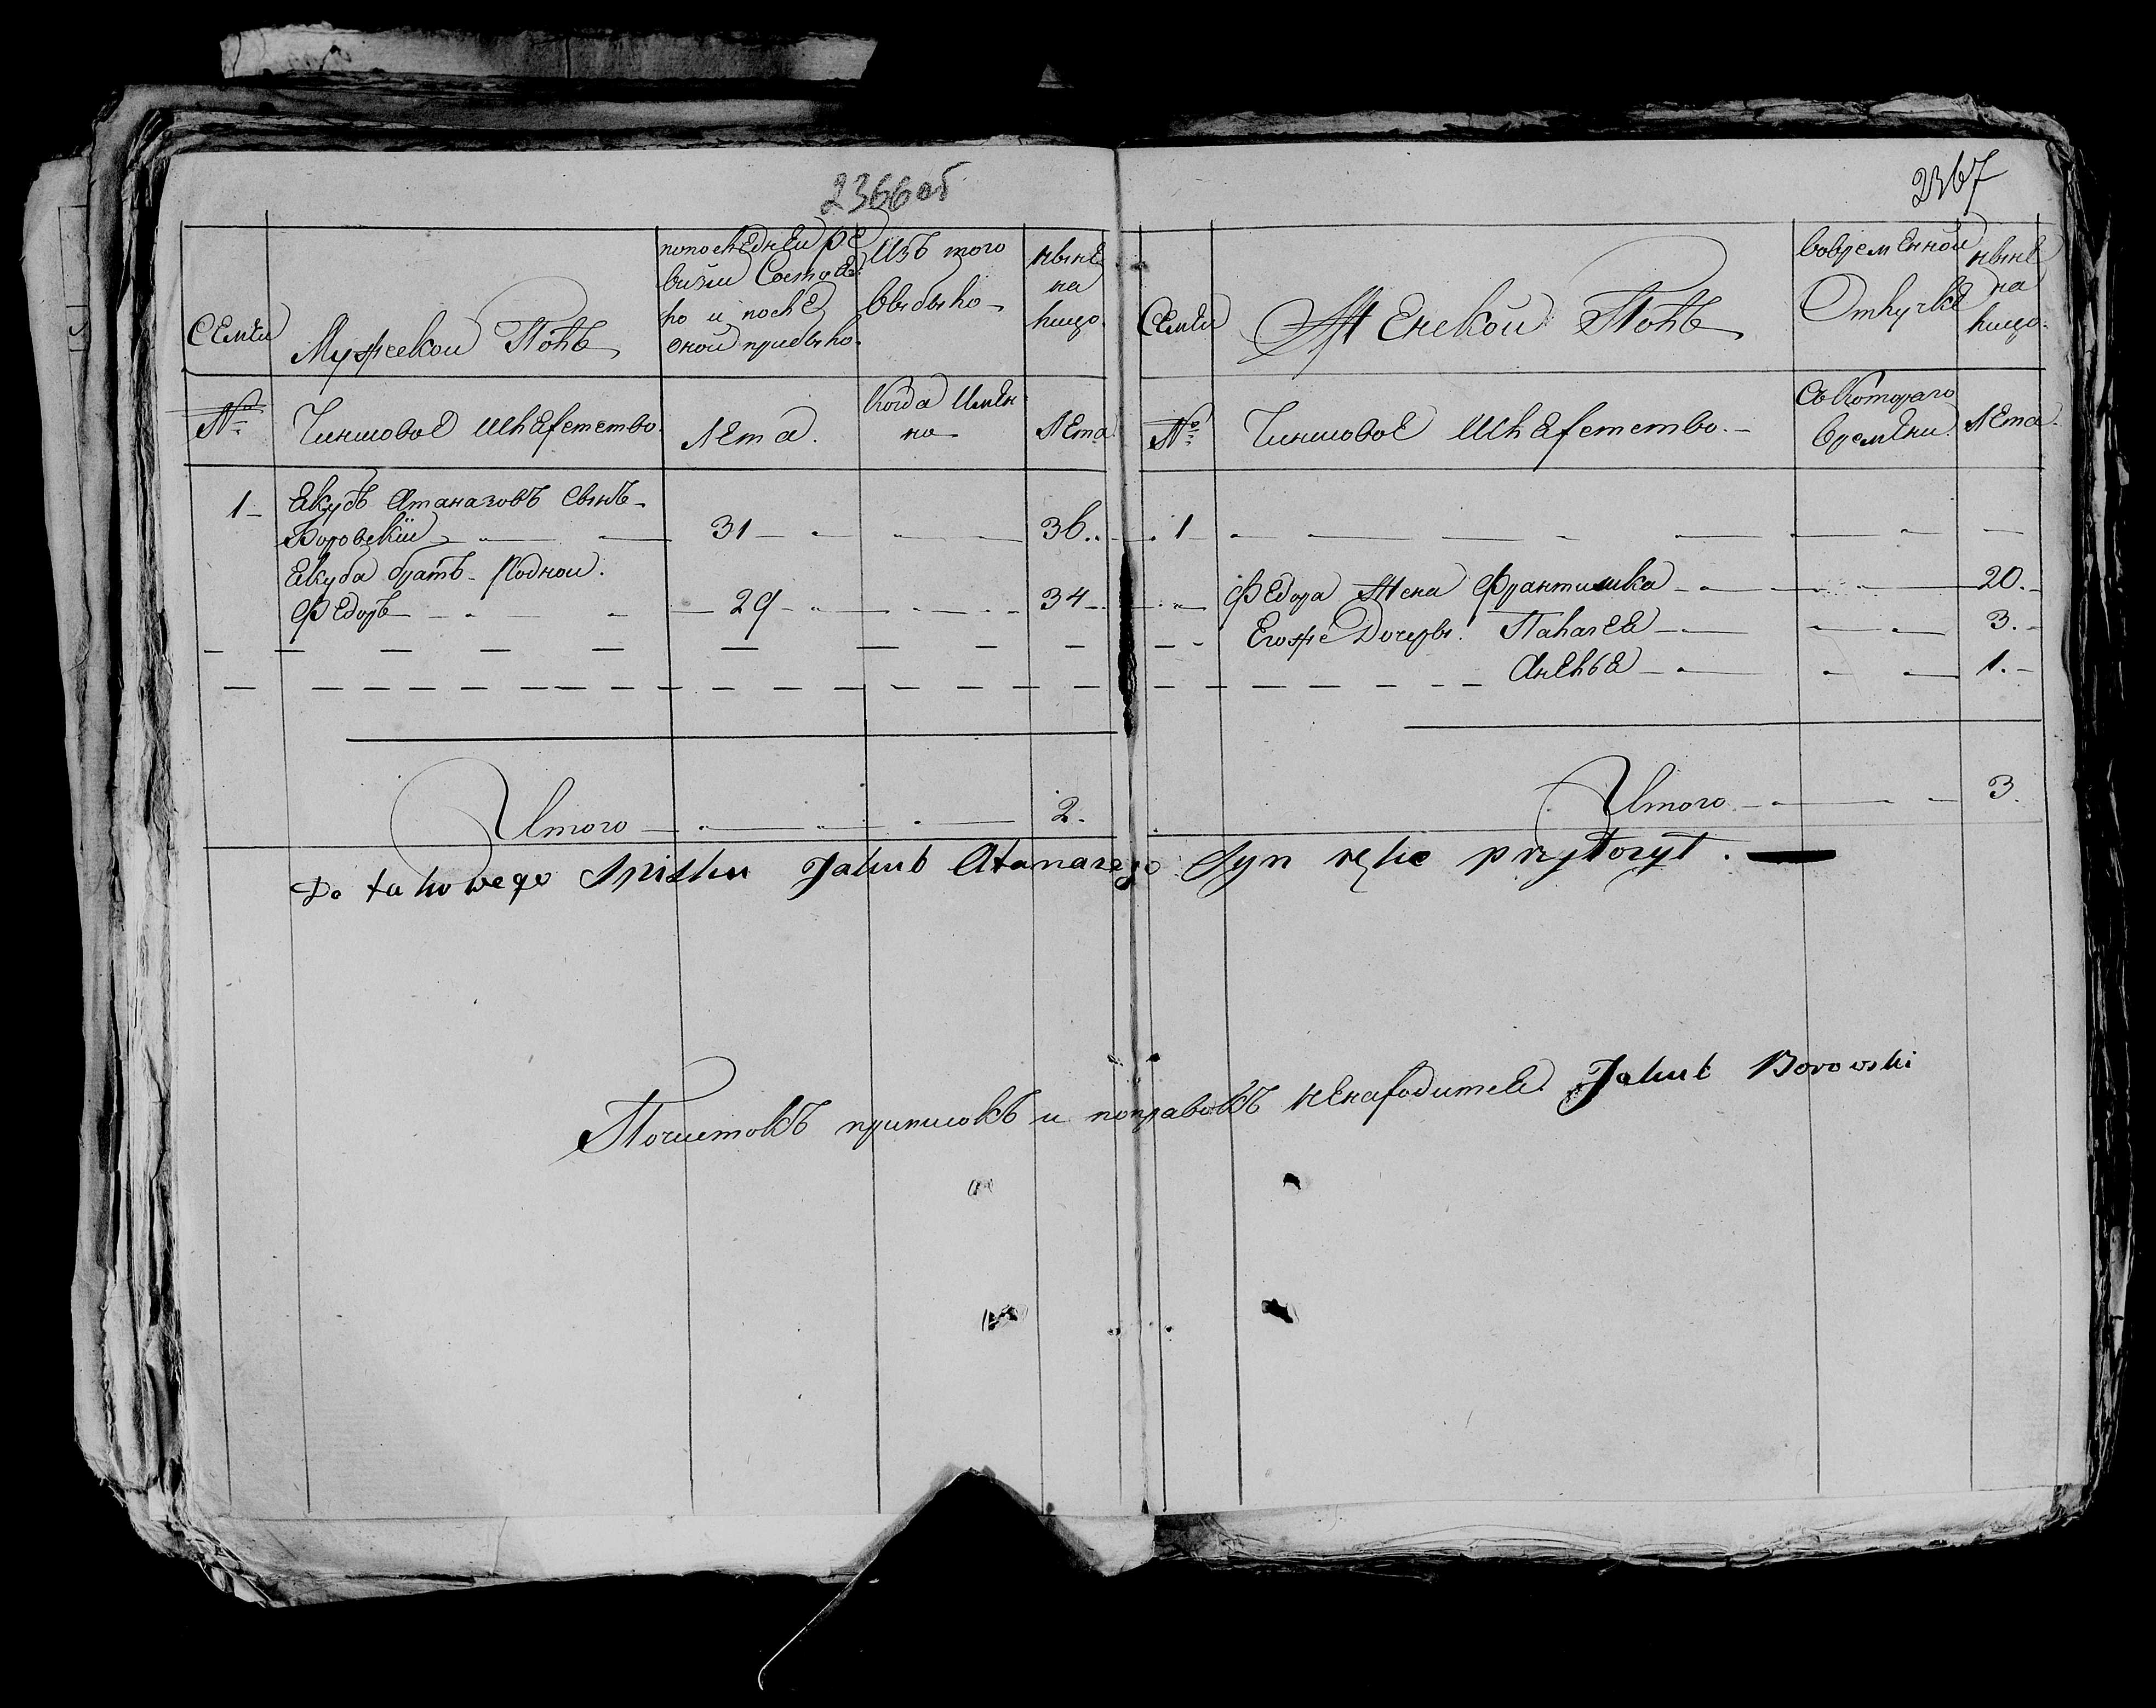 2366об
Семьи
Мужескои Полъ
попоследнеи ре
визии Состояло
ло и после
оной прибыло.
Изъ того
выбыло
ныне
на
лицо.
№
Чиншовое шляхетство.
Лета.
Когда Имен
но
Лета
1 Якубъ Атаназовъ сынъ
Боровскій 31 36
Якуба братъ Родной.
Федоръ 29 34
Итого 2.
2367
Семьи
Женской Полъ
вовременной
Отлучке
ныне
на
лицо.
№
Чиншовое Шляхетство.
Съ Котораго
времени.
Лета.
1
Федора Жена Францишка 20.
Егоже Дочеры. Палагея 3.
Анеля 1.
Итого 3.
Do takowego Spisku Jakub Atanazego Syn rękę przyłożył.
Почистокъ приписокъ и поправокъ ненаходится Jakub Borowski